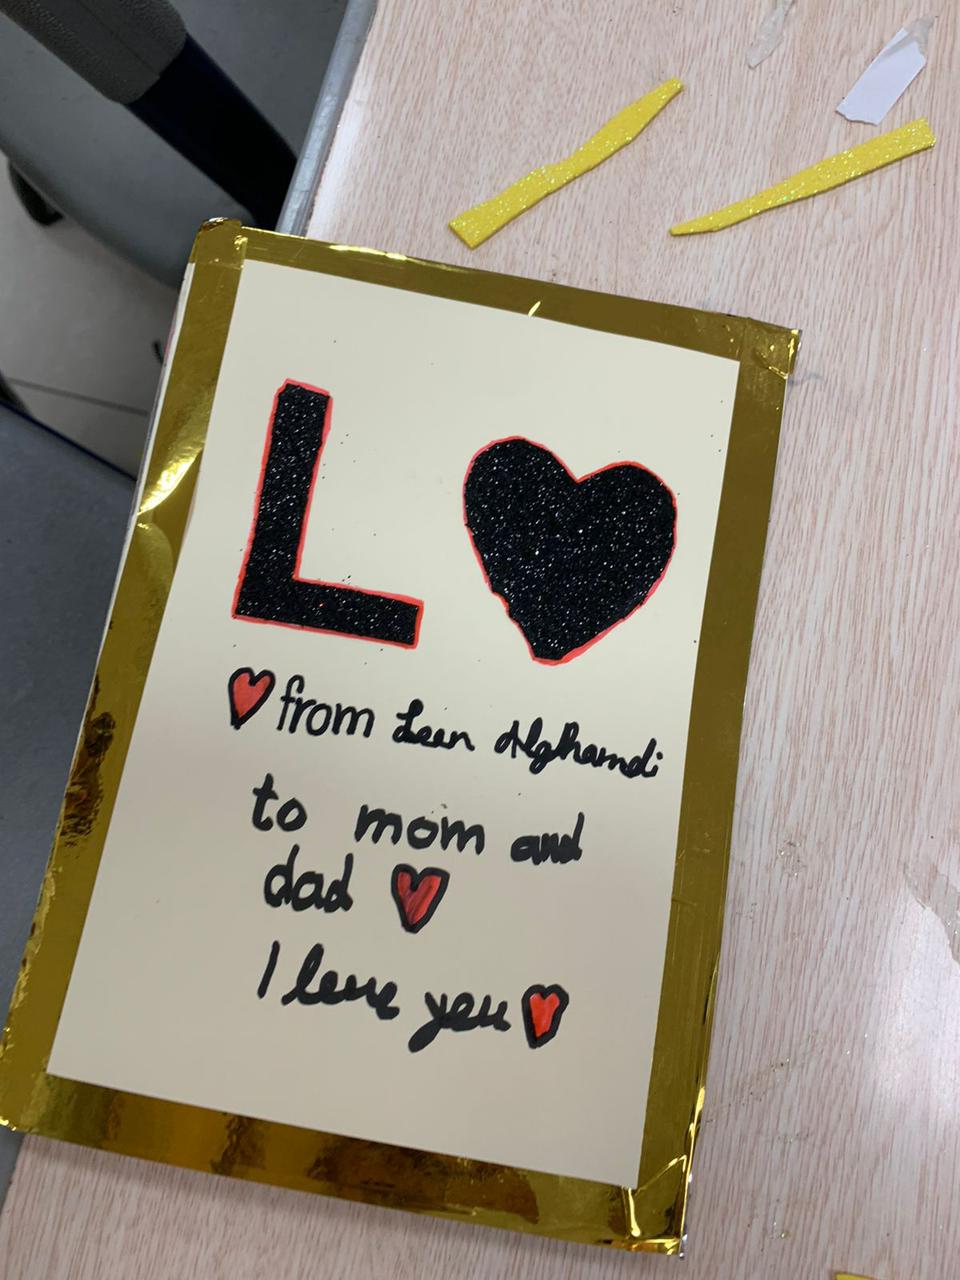 L
from Leen Alghamdi
to mom and
dad
I love you